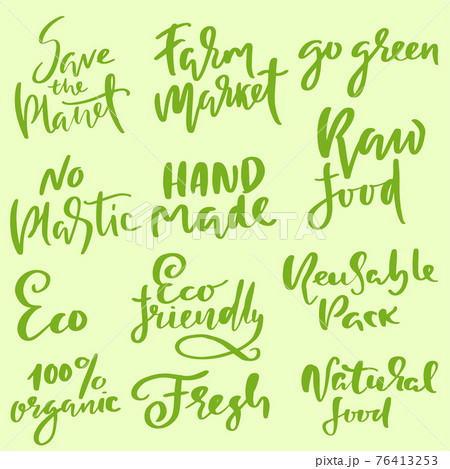 Save
the
Planet
Farm
Market
go green
No
Plastic
HAND
Made
Raw
food
Eco
Eco
friendly
Reusable
Pack
100%
organic
Fresh
Natural
food
PIXTA
pixta.jp - 76413253